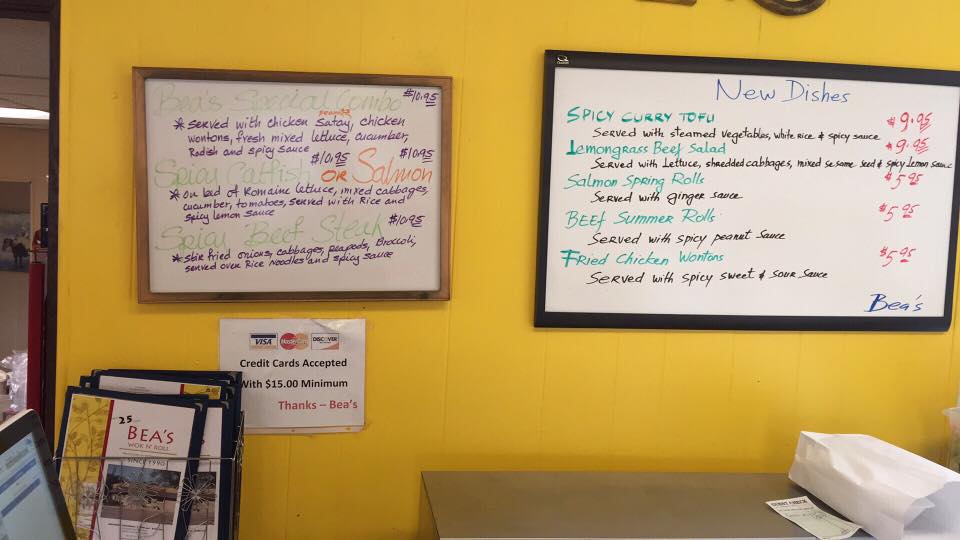 Bea's Special Combo $10.95
* Served with chicken Peanut Satay, chicken
wontons, fresh mixed lettuce, cucumber,
Radish and spicy sauce
Spicy Catfish $10.95 OR Salmon $10.95
* on bed of Romaine lettuce, mixed cabbages,
cucumber, tomatoes, served with Rice and
spicy lemon sauce
Spicy Beef Steak $10.95
* stir fried onions, cabbages, peapods, Broccoli,
served over Rice Noodles and spicy sauce
New Dishes
SPICY CURRY TOFU $9.95
Served with steamed vegetables, white Rice & spicy sauce
Lemongrass Beef Salad $9.95
Served with Lettuce, shredded cabbages, mixed sesame seed & spicy Lemon sauce
Salmon Spring Rolls $5.95
Served with ginger sauce
BEEF Summer Rolls $5.95
Served with spicy peanut Sauce
Fried Chicken Wontons $5.95
Served with spicy sweet & sour sauce
Bea's
VISA MasterCard DISCOVER
Credit Cards Accepted
With $15.00 Minimum
Thanks – Bea's
25
BEA'S
WOK N' ROLL
SINCE 1990
GUEST CHECK